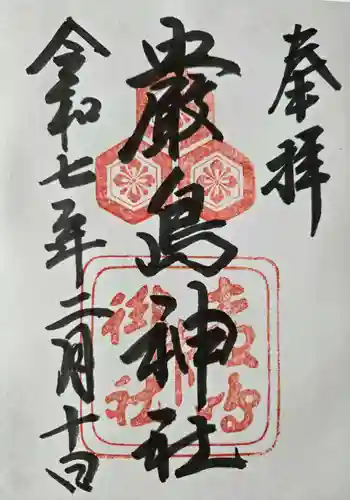 奉拝
厳島神社
令和七年二月十六日